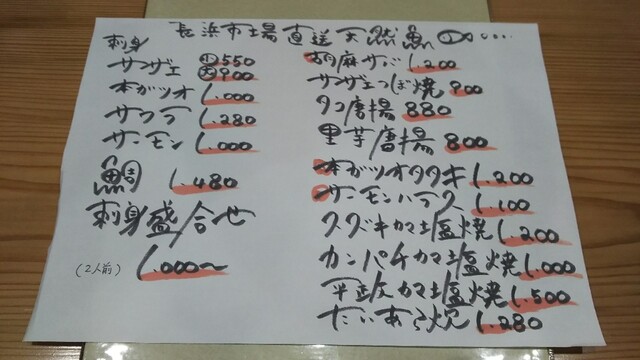 長浜市場直送天然魚
刺身
サザエ 小550
大900
本ガツオ 1.000
サワラ 1.280
サーモン 1.000
鯛 1.480
刺身盛合せ
(2人前) 1.000〜
胡麻サバ 1.200
サザエつぼ焼 900
タコ唐揚 880
里芋唐揚 800
本ガツオタタキ 1.200
サーモンハラス 1.100
スズキカマ塩焼 1.200
カンパチカマ塩焼 1.000
平政カマ塩焼 1.500
たいあら炊 1.280